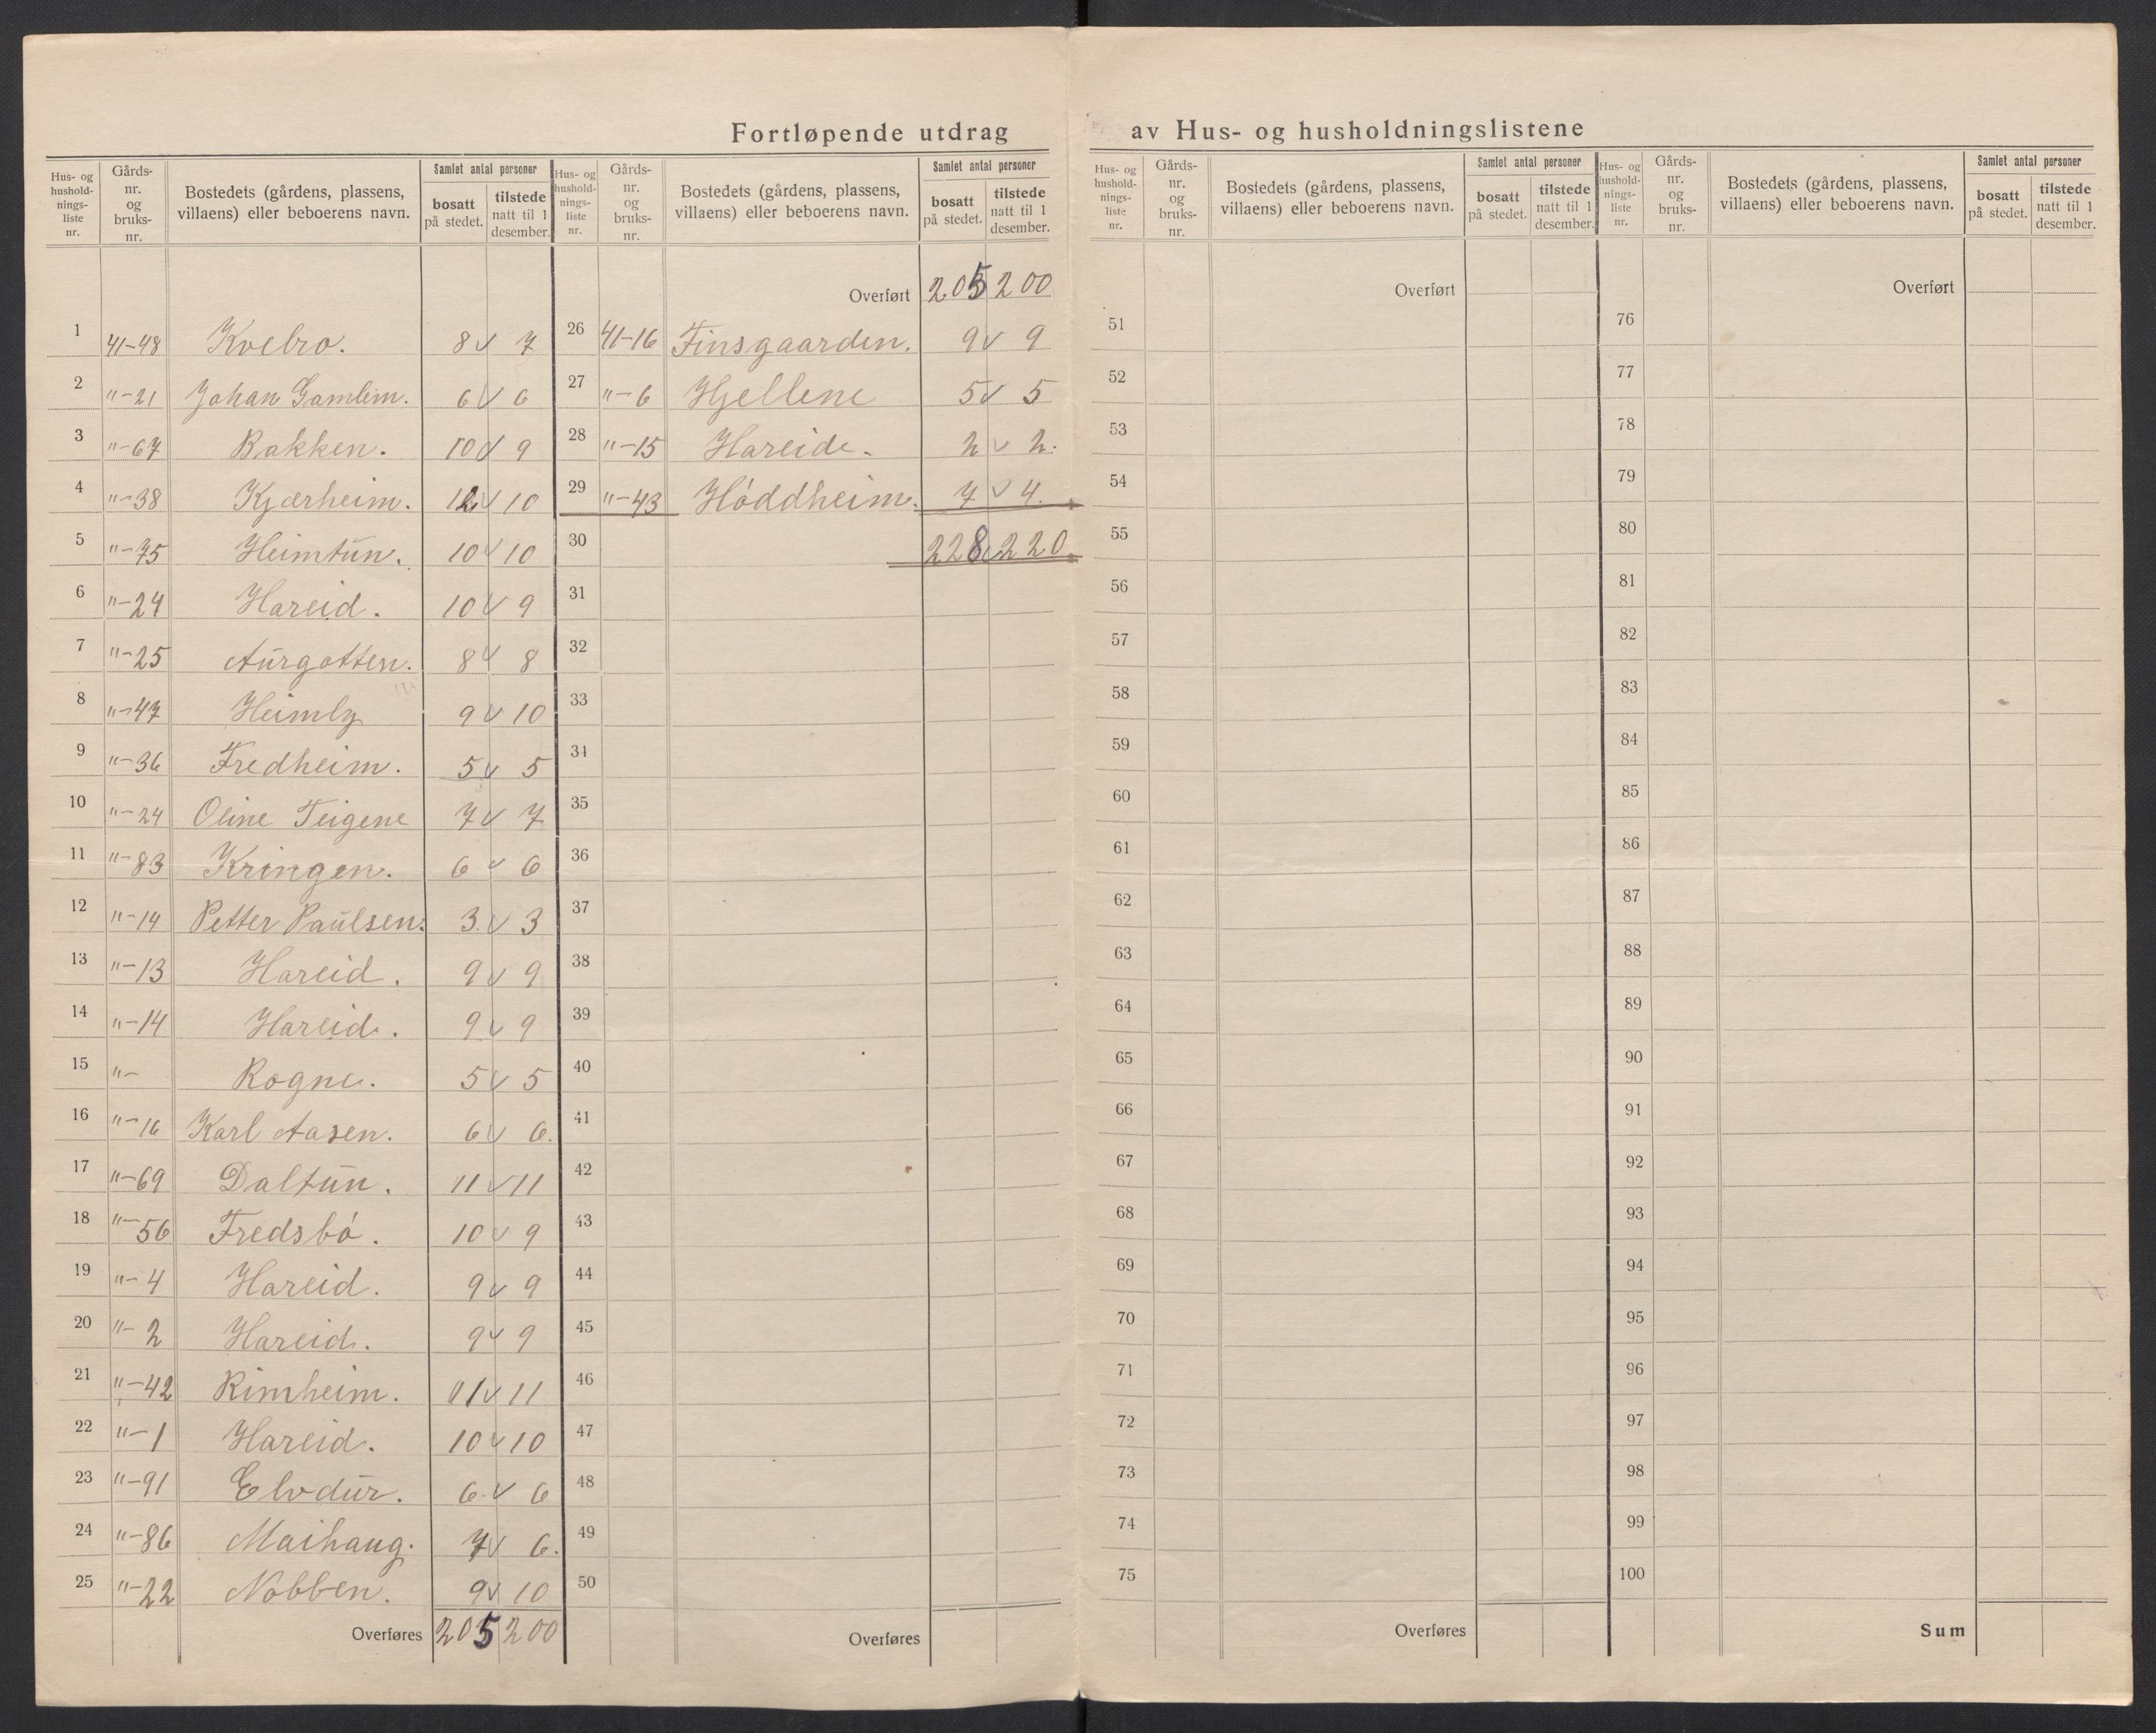 Fortløpende utdrag av Hus- og husholdningslistene
Hus- og hushold-nings-liste nr. | Gårds-nr. og bruks-nr. | Bostedets (gårdens, plassens, villaens) eller beboerens navn. | Samlet antal personer | bosatt på stedet. | tilstede natt til 1 desember.
1 41-48 Kvebro. 8 v 7
2 "-21 Johan Gamlem. 6 v 6
3 "-67 Bakken. 10 v 9
4 "-38 Kjærheim. 12 v 10
5 "-75 Heimtun. 10 v 10
6 "-24 Hareid. 10 v 9
7 "-25 Aurgotten. 8 v 8
8 "-47 Heimly 9 v 10
9 "-36 Fredheim. 5 v 5
10 "-24 Oline Teigene 7 v 7
11 "-83 Kringen. 6 v 6
12 "-14 Petter Paulsen. 3 v 3
13 "-13 Hareid. 9 v 9
14 "-14 Hareid. 9 v 9
15 "- Rogne. 5 v 5
16 "-16 Karl Aasen. 6 v 6.
17 "-69 Daltun. 11 v 11
18 "-56 Fredsbó. 10 v 9
19 "-4 Hareid. 9 v 9
20 "-2 Hareid. 9 v 9
21 "-42 Rimheim. 11 v 11
22 "-1 Hareid. 10 v 10
23 "-91 Elvdur. 6 v 6
24 "-86 Maihaug. 7 v 6.
25 "-22 Nobben. 9 v 10
Overføres 205 200
Hus- og hushold-nings-liste nr. | Gårds-nr. og bruks-nr. | Bostedets (gårdens, plassens, villaens) eller beboerens navn. | Samlet antal personer | bosatt på stedet. | tilstede natt til 1 desember.
Overført 205 200
26 41-16 Finsgaarden. 9 v 9
27 "-6 Hjellene 5 v 5
28 "-15 Hareide. 2 v 2.
29 "-43 Hóddheim. 7 v 4.
30 228 v 220.
31
32
33
34
35
36
37
38
39
40
41
42
43
44
45
46
47
48
49
50
Overføres
Hus- og hushold-nings-liste nr. | Gårds-nr. og bruks-nr. | Bostedets (gårdens, plassens, villaens) eller beboerens navn. | Samlet antal personer | bosatt på stedet. | tilstede natt til 1 desember.
Overført
51
52
53
54
55
56
57
58
59
60
61
62
63
64
65
66
67
68
69
70
71
72
73
74
75
Overføres
Hus- og hushold-nings-liste nr. | Gårds-nr. og bruks-nr. | Bostedets (gårdens, plassens, villaens) eller beboerens navn. | Samlet antal personer | bosatt på stedet. | tilstede natt til 1 desember.
Overført
76
77
78
79
80
81
82
83
84
85
86
87
88
89
90
91
92
93
94
95
96
97
98
99
100
Sum